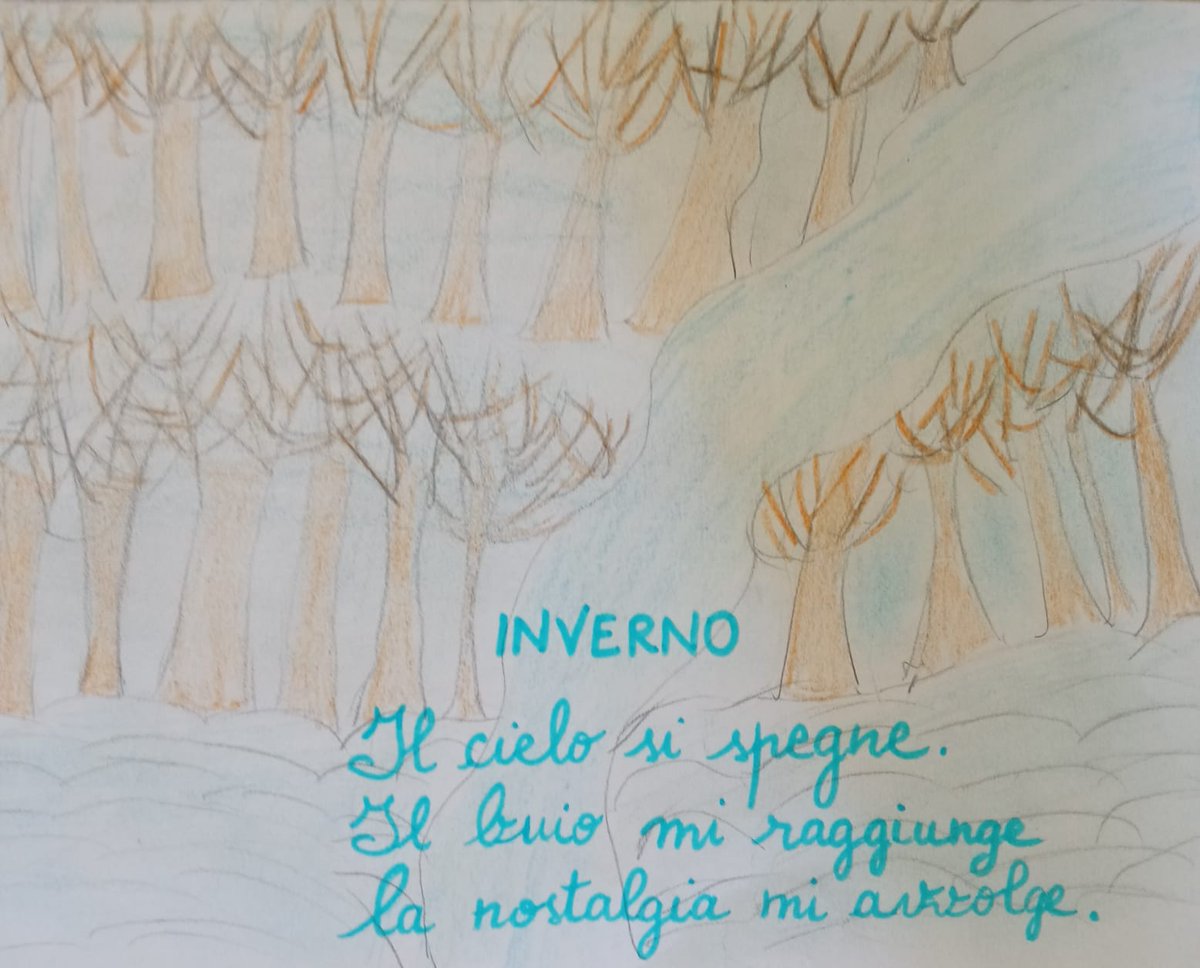 INVERNO
Il cielo si spegne.
Il buio mi raggiunge
la nostalgia mi avvolge.